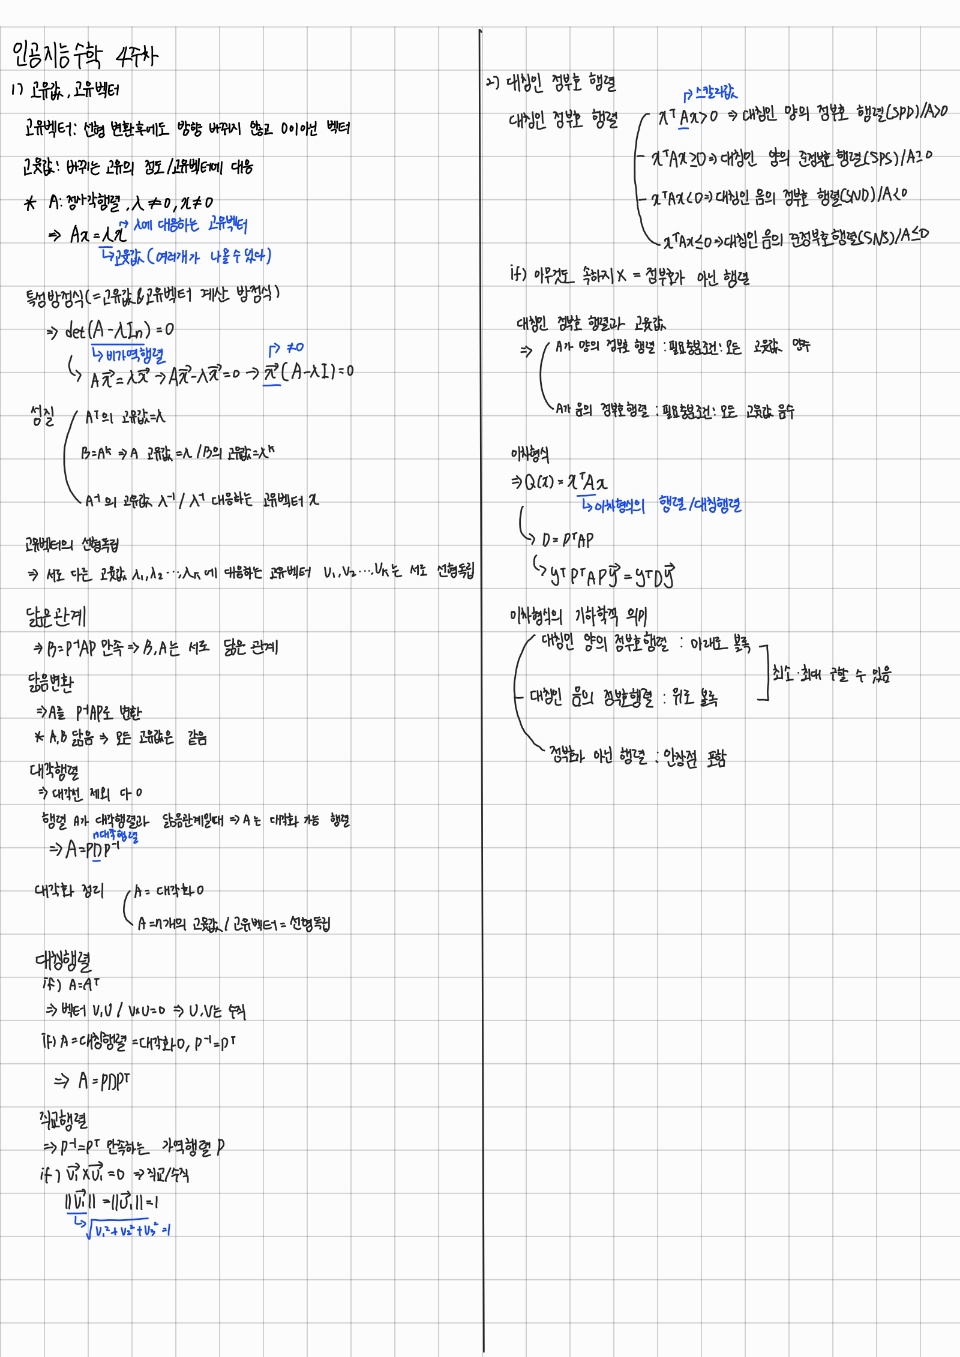 인공지능수학 4주차
1) 고유값, 고유벡터
고유벡터: 선형 변환후에도 방향 바뀌지 않고 0이아닌 벡터
고윳값: 바뀌는 고유의 정도/고유벡터에 대응
* A: 정사각행렬, λ≠0, x≠0
⇒ Ax=λx → λ에 대응하는 고유벡터
↳고윳값 (여러개가 나올수있다)
특성방정식(=고유값&고유벡터 계산 방정식)
⇒ det(A-λIn)=0
↳비가역행렬
↳ Ax⃗=λx⃗ → Ax⃗-λx⃗=0 → x⃗(A-λI)=0
→ ≠0
성질
Aᵀ의 고유값=λ
B=Aᴷ ⇒ A 고유값=λ /B의 고유값=λᴷ
A⁻¹의 고유값 λ⁻¹/ λ⁻¹ 대응하는 고유벡터 x
고유벡터의 선형독립
⇒ 서로 다른 고윳값 λ1, λ2 ⋯, λk에 대응하는 고유벡터 V1, V2 ⋯, Vk는 서로 선형독립
닮은관계
⇒ B=P⁻¹AP 만족 ⇒ B,A는 서로 닮은 관계
닮음변환
⇒A를 P⁻¹AP로 변환
* A,B 닮음 ⇒ 모든 고유값은 같음
대각행렬
⇒ 대각선 제외 다 0
행렬 A가 대각행렬과 닮음관계일때 ⇒ A는 대각화 가능 행렬
n대각행렬
⇒ A=PDP⁻¹
대각화 정리
A = 대각화 O
A=n개의 고윳값 / 고유벡터 = 선형독립
대칭행렬
if) A=Aᵀ
⇒ 벡터 V,U / V×U=0 ⇒ U,V는 수직
if) A=대칭행렬 =대각화O, P⁻¹=Pᵀ
⇒ A=PDPᵀ
직교행렬
⇒ P⁻¹=Pᵀ 만족하는 가역행렬 P
if) V⃗1×U⃗1=0 ⇒직교/수직
||V⃗1|| =||U⃗1||=1
↳√V1²+V2²+V3²=1
2) 대칭인 정부호 행렬
→스칼라값
대칭인 정부호 행렬
xᵀAx>0 ⇒ 대칭인 양의 정부호 행렬(SPD)/A>0
xᵀAx≥0⇒대칭인 양의 준정부호 행렬(SPS)/A≥0
xᵀAx<0⇒대칭인 음의 정부호 행렬(SND)/A<0
xᵀAx≤0⇒대칭인 음의 준정부호 행렬(SNS)/A≤0
if) 아무것도 속하지 X = 정부호가 아닌 행렬
대칭인 정부호 행렬과 고윳값
⇒ A가 양의 정부호 행렬 : 필요충분조건: 모든 고윳값 양수
A가 음의 정부호행렬 : 필요충분조건: 모든 고윳값 음수
이차형식
⇒Q(x)=xᵀAx
↳이차형식의 행렬/대칭행렬
↳ D=PᵀAP
↳ yᵀPᵀAPy⃗=yᵀDy⃗
이차형식의 기하학적 의미
대칭인 양의 정부호행렬 : 아래로 볼록
최소·최대 구할 수 있음
대칭인 음의 정부호행렬 : 위로 볼록
정부호가 아닌 행렬 : 안장점 포함